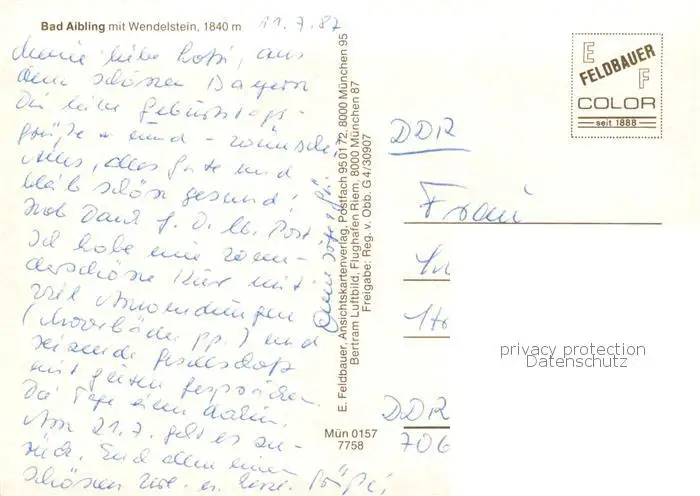 Bad Aibling mit Wendelstein, 1840 m
11.7.87
Meine liebe Lotti, aus
dem schönen Bayern
Dir liebe Geburtstags-
grüße und - wünsche,
Alles, alles Gute und
bleib schön gesund!
Hab Dank f. D. lb. Post.
Ich habe eine wun-
derschöne Kur mit
viel Anwendungen
(Moorbäder pp.) und
reizende Gesellschaft
mit guten Gesprächen.
Die Tage eilen dahin.
Am 21.7. geht es zu-
rück. Euch allen eine
schöne Zeit u. herzl. Grüße,
E. Feldbauer, Ansichtskartenverlag, Postfach 95 01 72, 8000 München 95
Bertram Luftbild, Flughafen Riem, 8000 München 87
Freigabe: Reg. v. Obb. G 4/30907
Mün 0157
7758
E
FELDBAUER
F
COLOR
seit 1888
DDR
Frau
DDR
706
privacy protection
Datenschutz